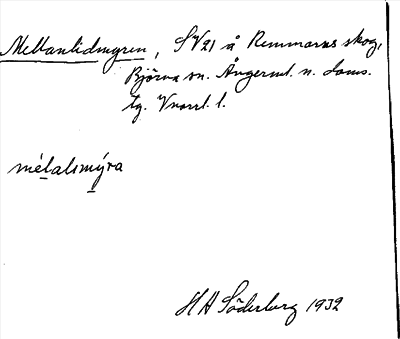 Mellanlidmyren, SV21 å Remmarns skog,
Björna sn. Ångerml. n. doms.
tg. Vnorrl. l.
mélalsmýra
H A Söderberg 1932